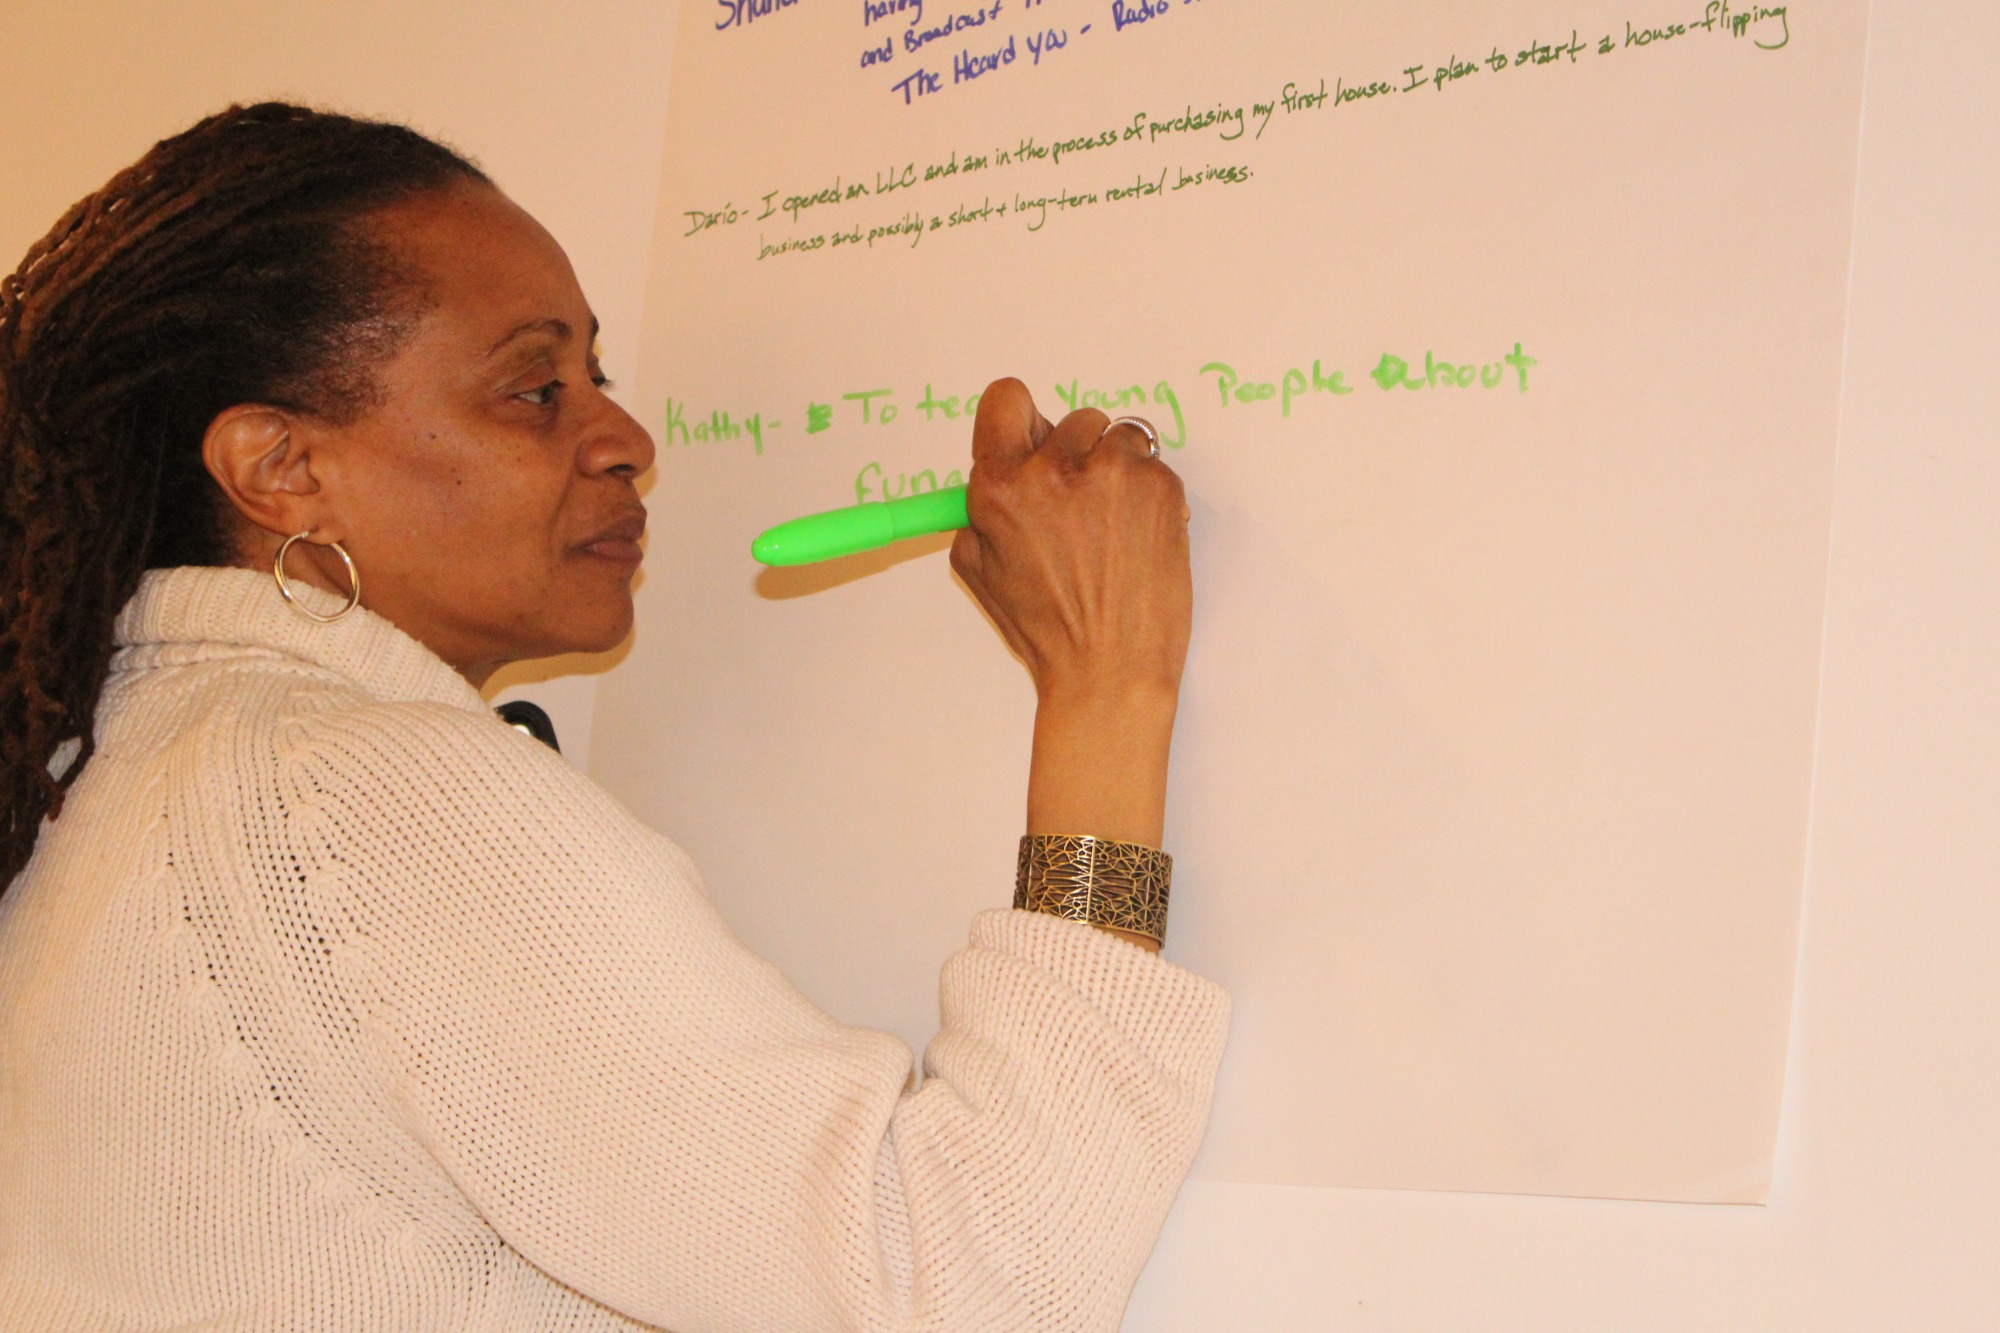 having
and Broadcast
The Heard you - Radio
Dario- I opened an LLC and am in the process of purchasing my first house. I plan to start a house-flipping
business and possibly a short + long-term rental business.
Kathy- To Young People about